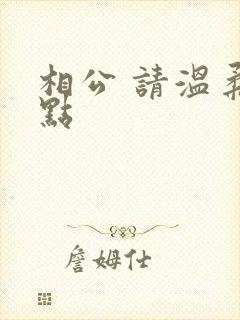 相公 請溫柔
點
詹姆仕